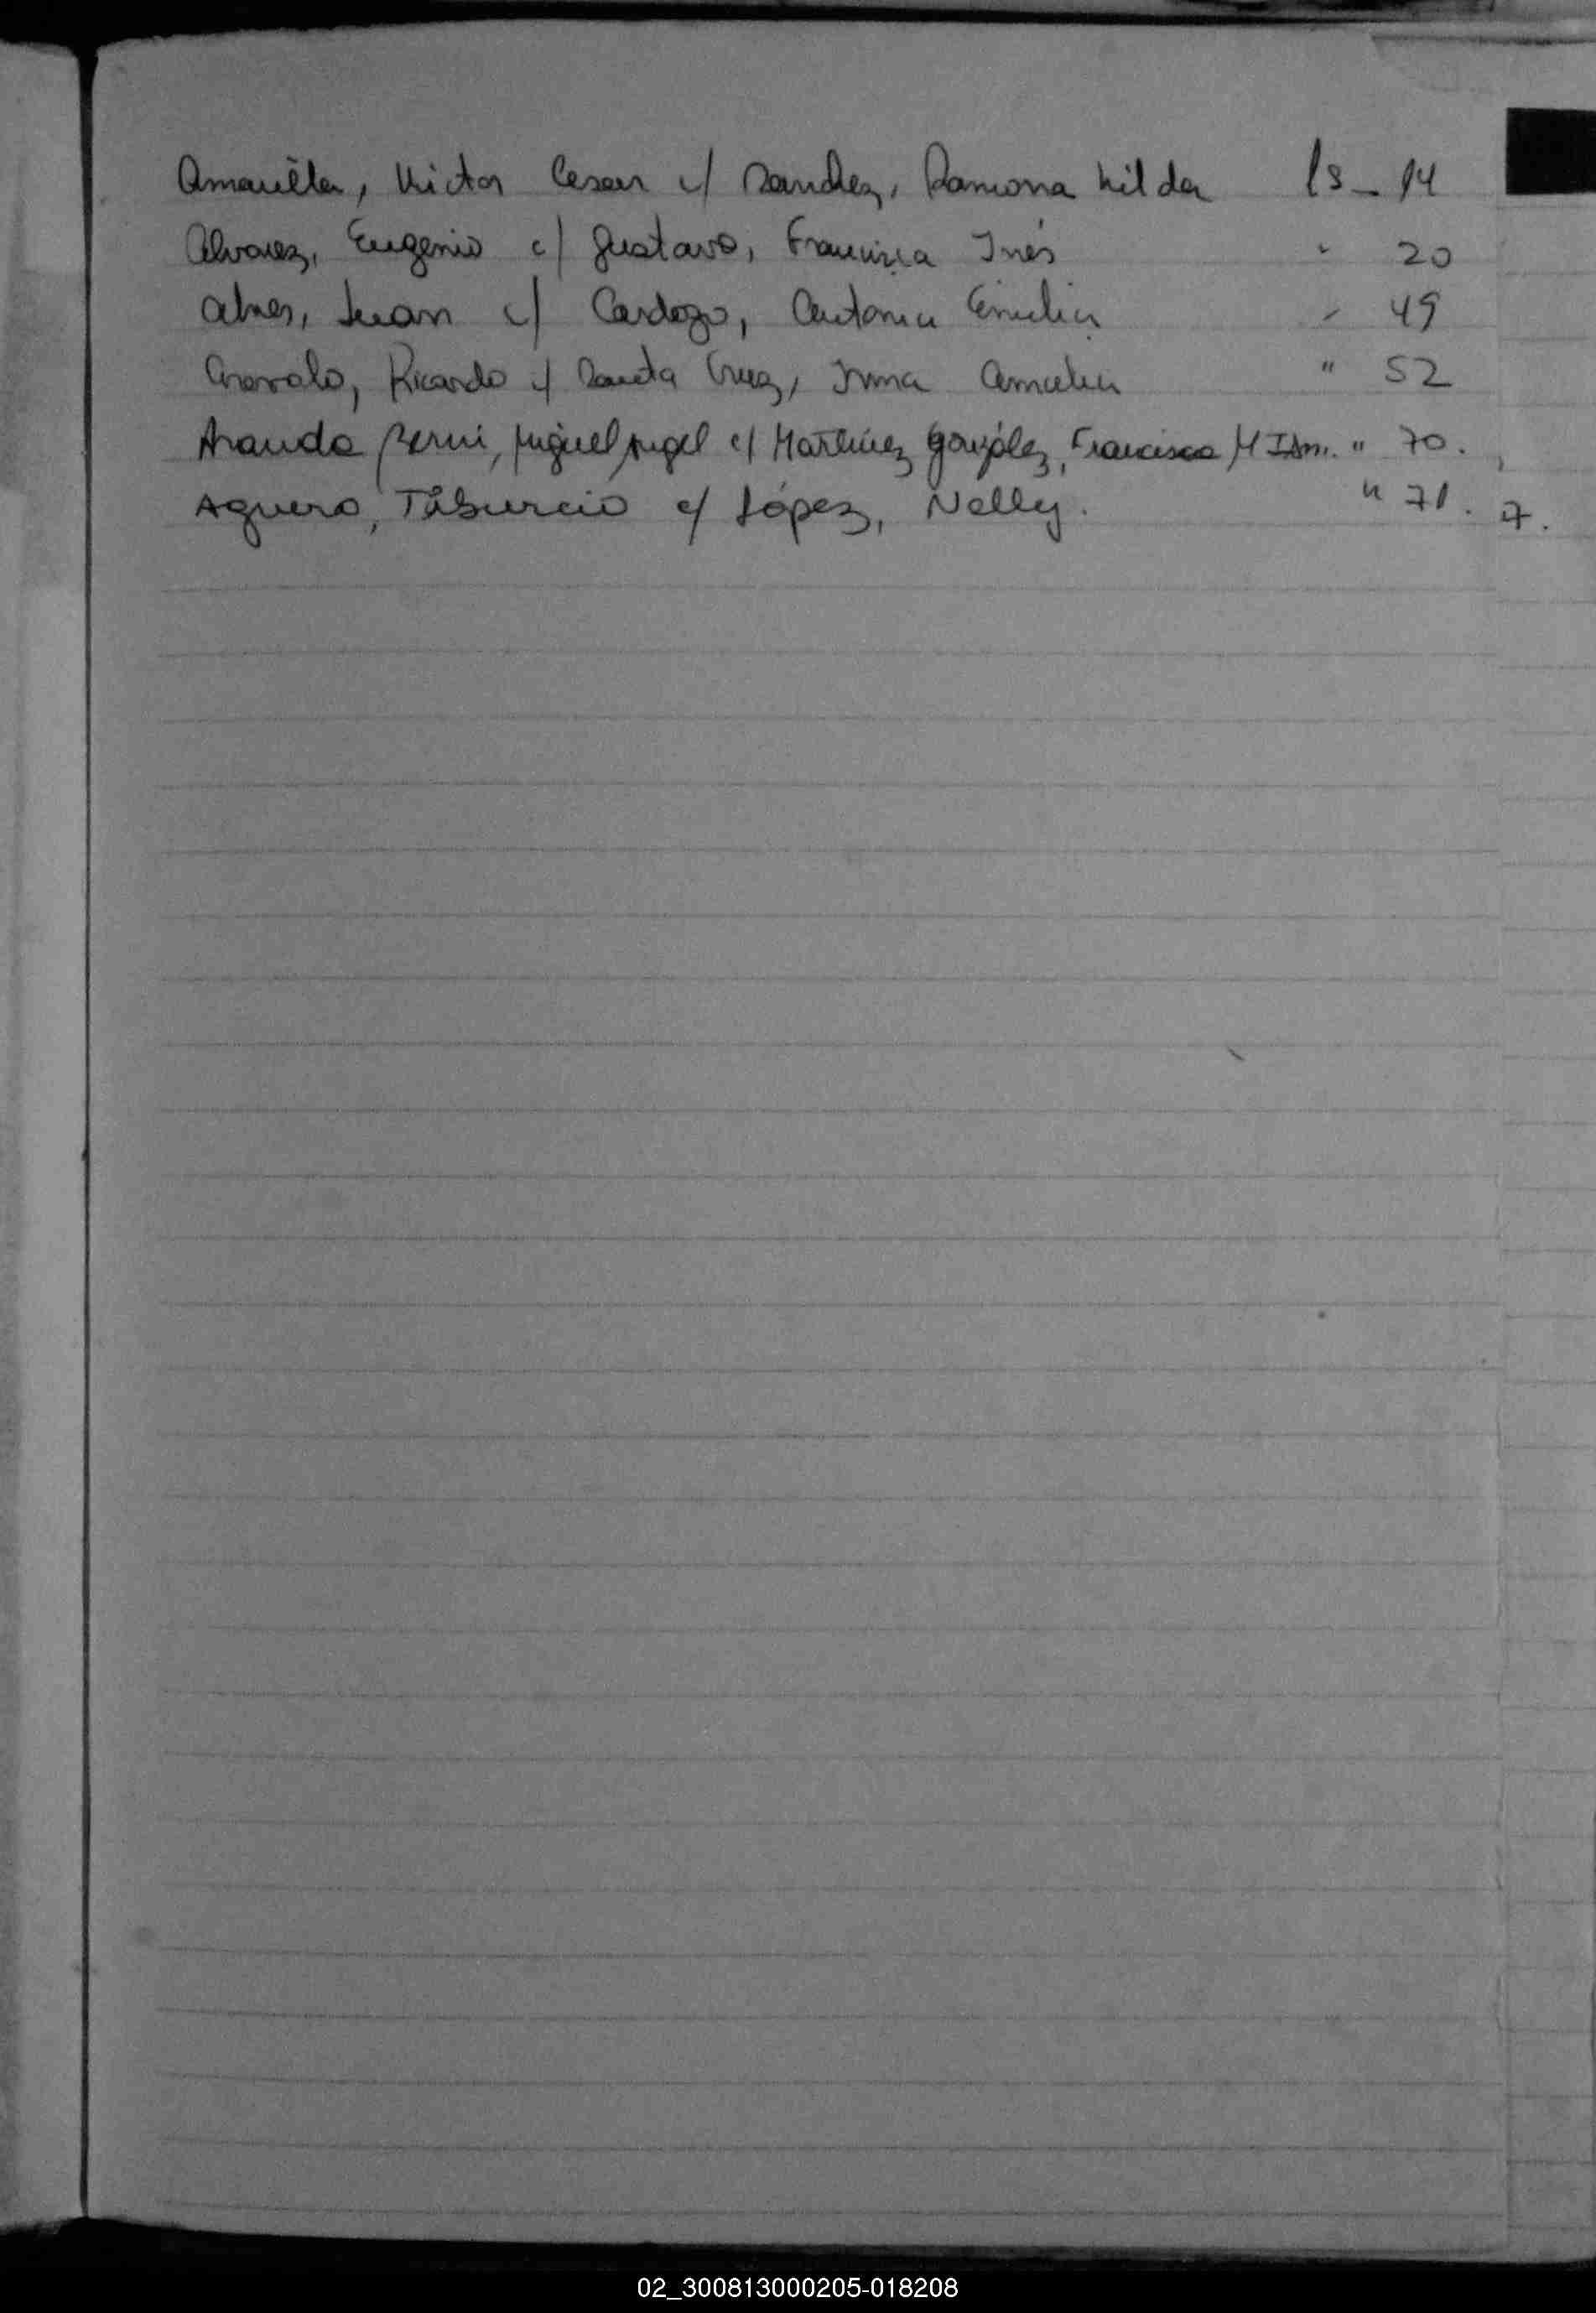 Amarilla, Victor Cesar c/ Sanchez, Ramona Nilda fs - 14
Alvarez, Eugenio c/ Gustavo, Francisca Inés " 20
Alves, Juan c/ Cardozo, Antonia Emilia " 49
Arevalo, Ricardo c/ Santa Cruz, Irma Amalia " 52
Aranda Berni, Miguel Angel c/ Martínez González, Francisca M " 70.
Aguero, Tiburcio c/ López, Nelly. " 71. 7.
02_300813000205-018208